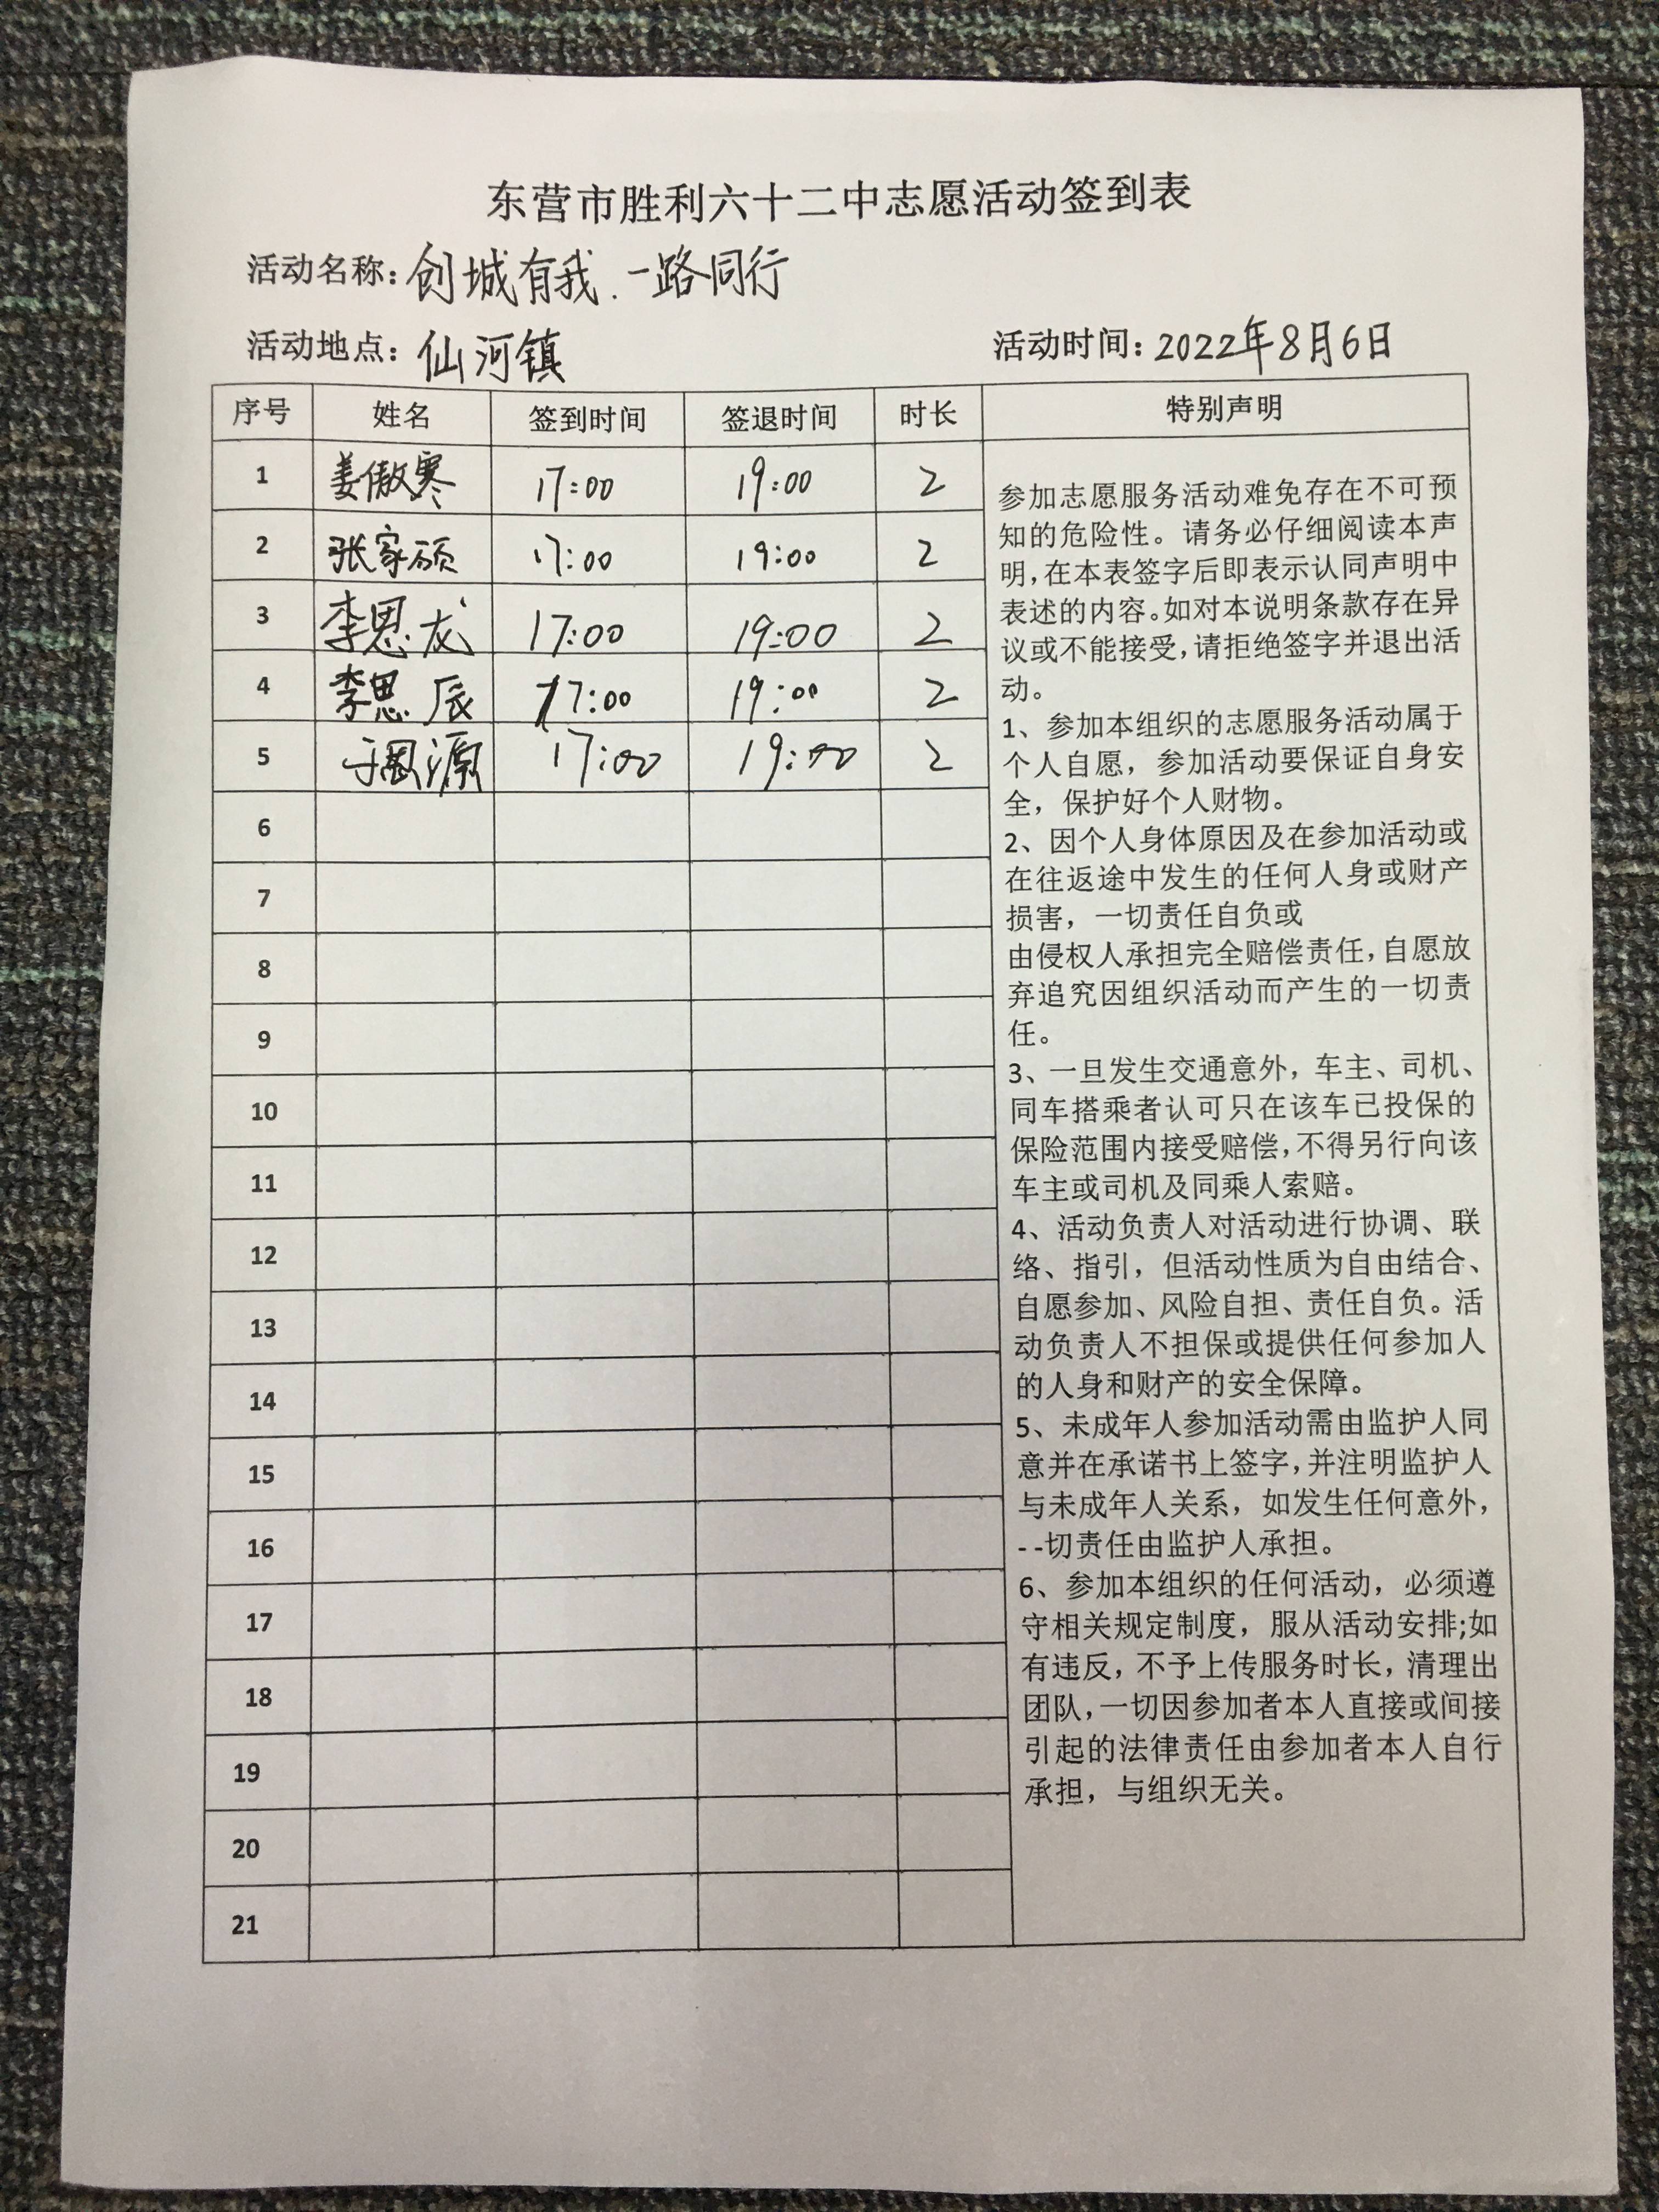 东营市胜利六十二中志愿活动签到表
活动名称：创城有我.一路同行
活动地点：仙河镇 活动时间：2022年8月6日
序号 姓名 签到时间 签退时间 时长 特别声明
1 姜傲寒 17:00 19:00 2
2 张家硕 17:00 19:00 2
3 李思龙 17:00 19:00 2
4 李思辰 17:00 19:00 2
5 17:00 19:00 2
6
7
8
9
10
11
12
13
14
15
16
17
18
19
20
21
参加志愿服务活动难免存在不可预
知的危险性。请务必仔细阅读本声
明,在本表签字后即表示认同声明中
表述的内容。如对本说明条款存在异
议或不能接受,请拒绝签字并退出活
动。
1、参加本组织的志愿服务活动属于
个人自愿，参加活动要保证自身安
全，保护好个人财物。
2、因个人身体原因及在参加活动或
在往返途中发生的任何人身或财产
损害，一切责任自负或
由侵权人承担完全赔偿责任,自愿放
弃追究因组织活动而产生的一切责
任。
3、一旦发生交通意外，车主、司机、
同车搭乘者认可只在该车已投保的
保险范围内接受赔偿,不得另行向该
车主或司机及同乘人索赔。
4、活动负责人对活动进行协调、联
络、指引，但活动性质为自由结合、
自愿参加、风险自担、责任自负。活
动负责人不担保或提供任何参加人
的人身和财产的安全保障。
5、未成年人参加活动需由监护人同
意并在承诺书上签字,并注明监护人
与未成年人关系，如发生任何意外，
--切责任由监护人承担。
6、参加本组织的任何活动，必须遵
守相关规定制度，服从活动安排;如
有违反，不予上传服务时长，清理出
团队,一切因参加者本人直接或间接
引起的法律责任由参加者本人自行
承担，与组织无关。